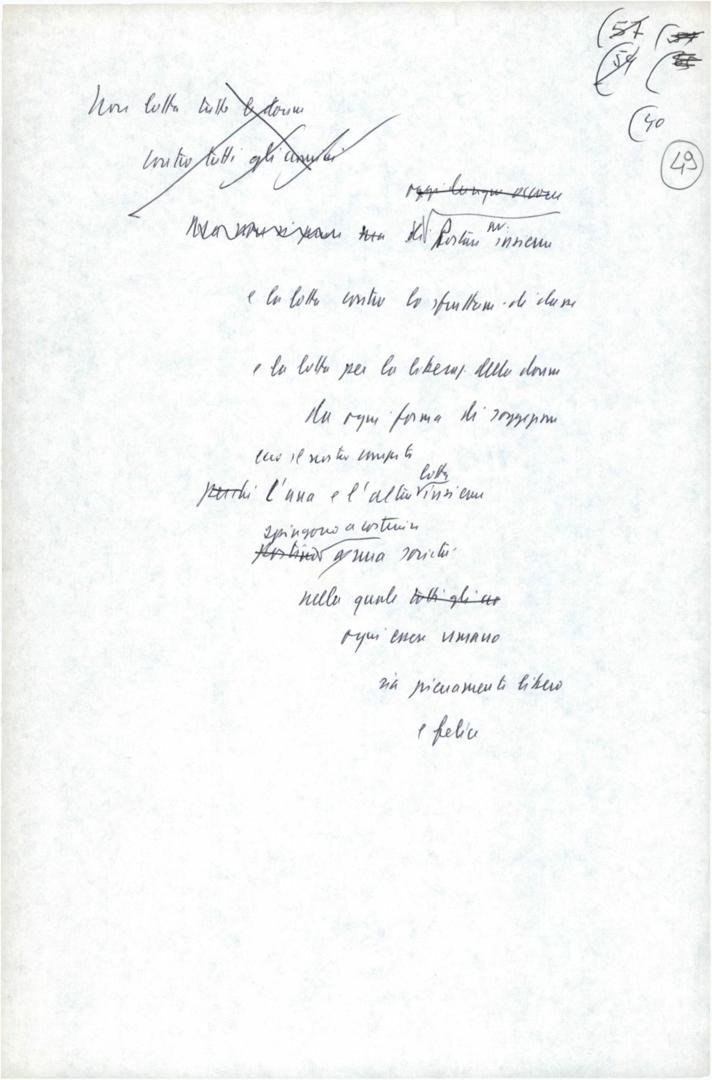 (57 (57
(54 (55
(40
49
Non lotta tutte le donne
contro tutti gli uomini
oggi dunque occorre
Portare insieme
e la lotta contro lo sfruttam. di classe
e la lotta per la liberaz. della donna
da ogni forma di soggezione
ecco il nostro compito
perché l'una e l'altra lotta insieme
spingono a costruire
portino a una società
nella quale tutti gli uo
ogni essere umano
sia pienamente libero
e felice